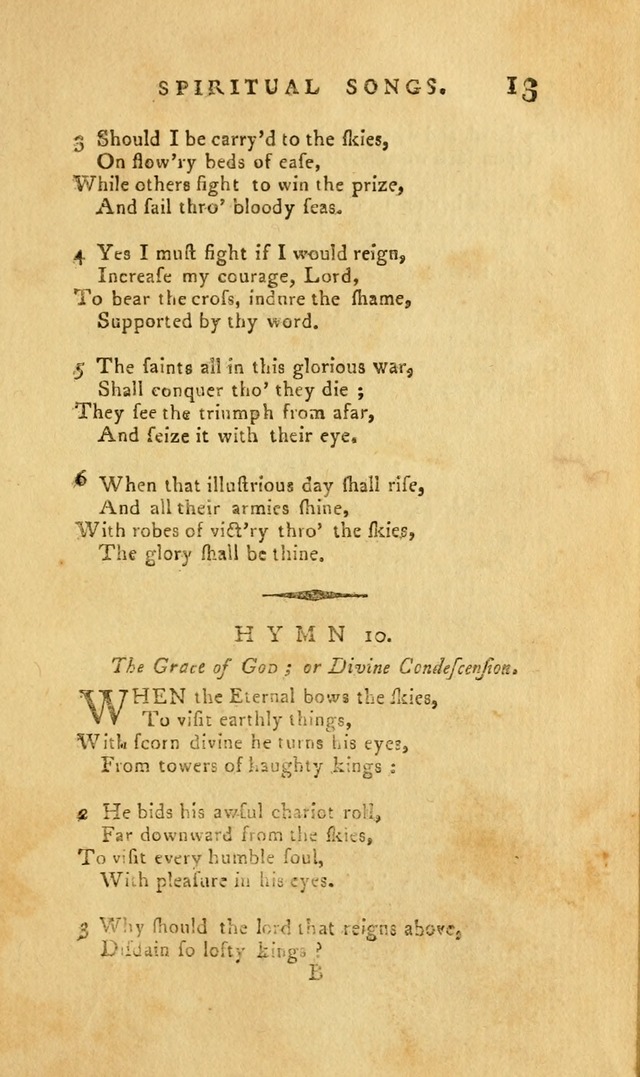 SPIRITUAL SONGS. 13
3 Should I be carry'd to the ſkies,
On flow'ry beds of eaſe,
While others fight to win the prize,
And ſail thro' bloody ſeas.
4 Yes I muſt fight if I would reign,
Increaſe my courage, Lord,
To bear the croſs, indure the ſhame,
Supported by thy word.
5 The ſaints all in this glorious war,
Shall conquer tho' they die ;
They ſee the triumph from afar,
And ſeize it with their eye.
6 When that illuſtrious day ſhall riſe,
And all their armies ſhine,
With robes of vict'ry thro' the ſkies,
The glory ſhall be thine.
HYMN 10.
The Grace of GOD ; or Divine Condeſcenſion.
WHEN the Eternal bows the ſkies,
To viſit earthly things,
With ſcorn divine he turns his eyes,
From towers of haughty kings :
2 He bids his awful chariot roll,
Far downward from the ſkies,
To viſit every humble ſoul,
With pleaſure in his eyes.
3 Why ſhould the lord that reigns above,
Diſdain ſo lofty kings ?
B